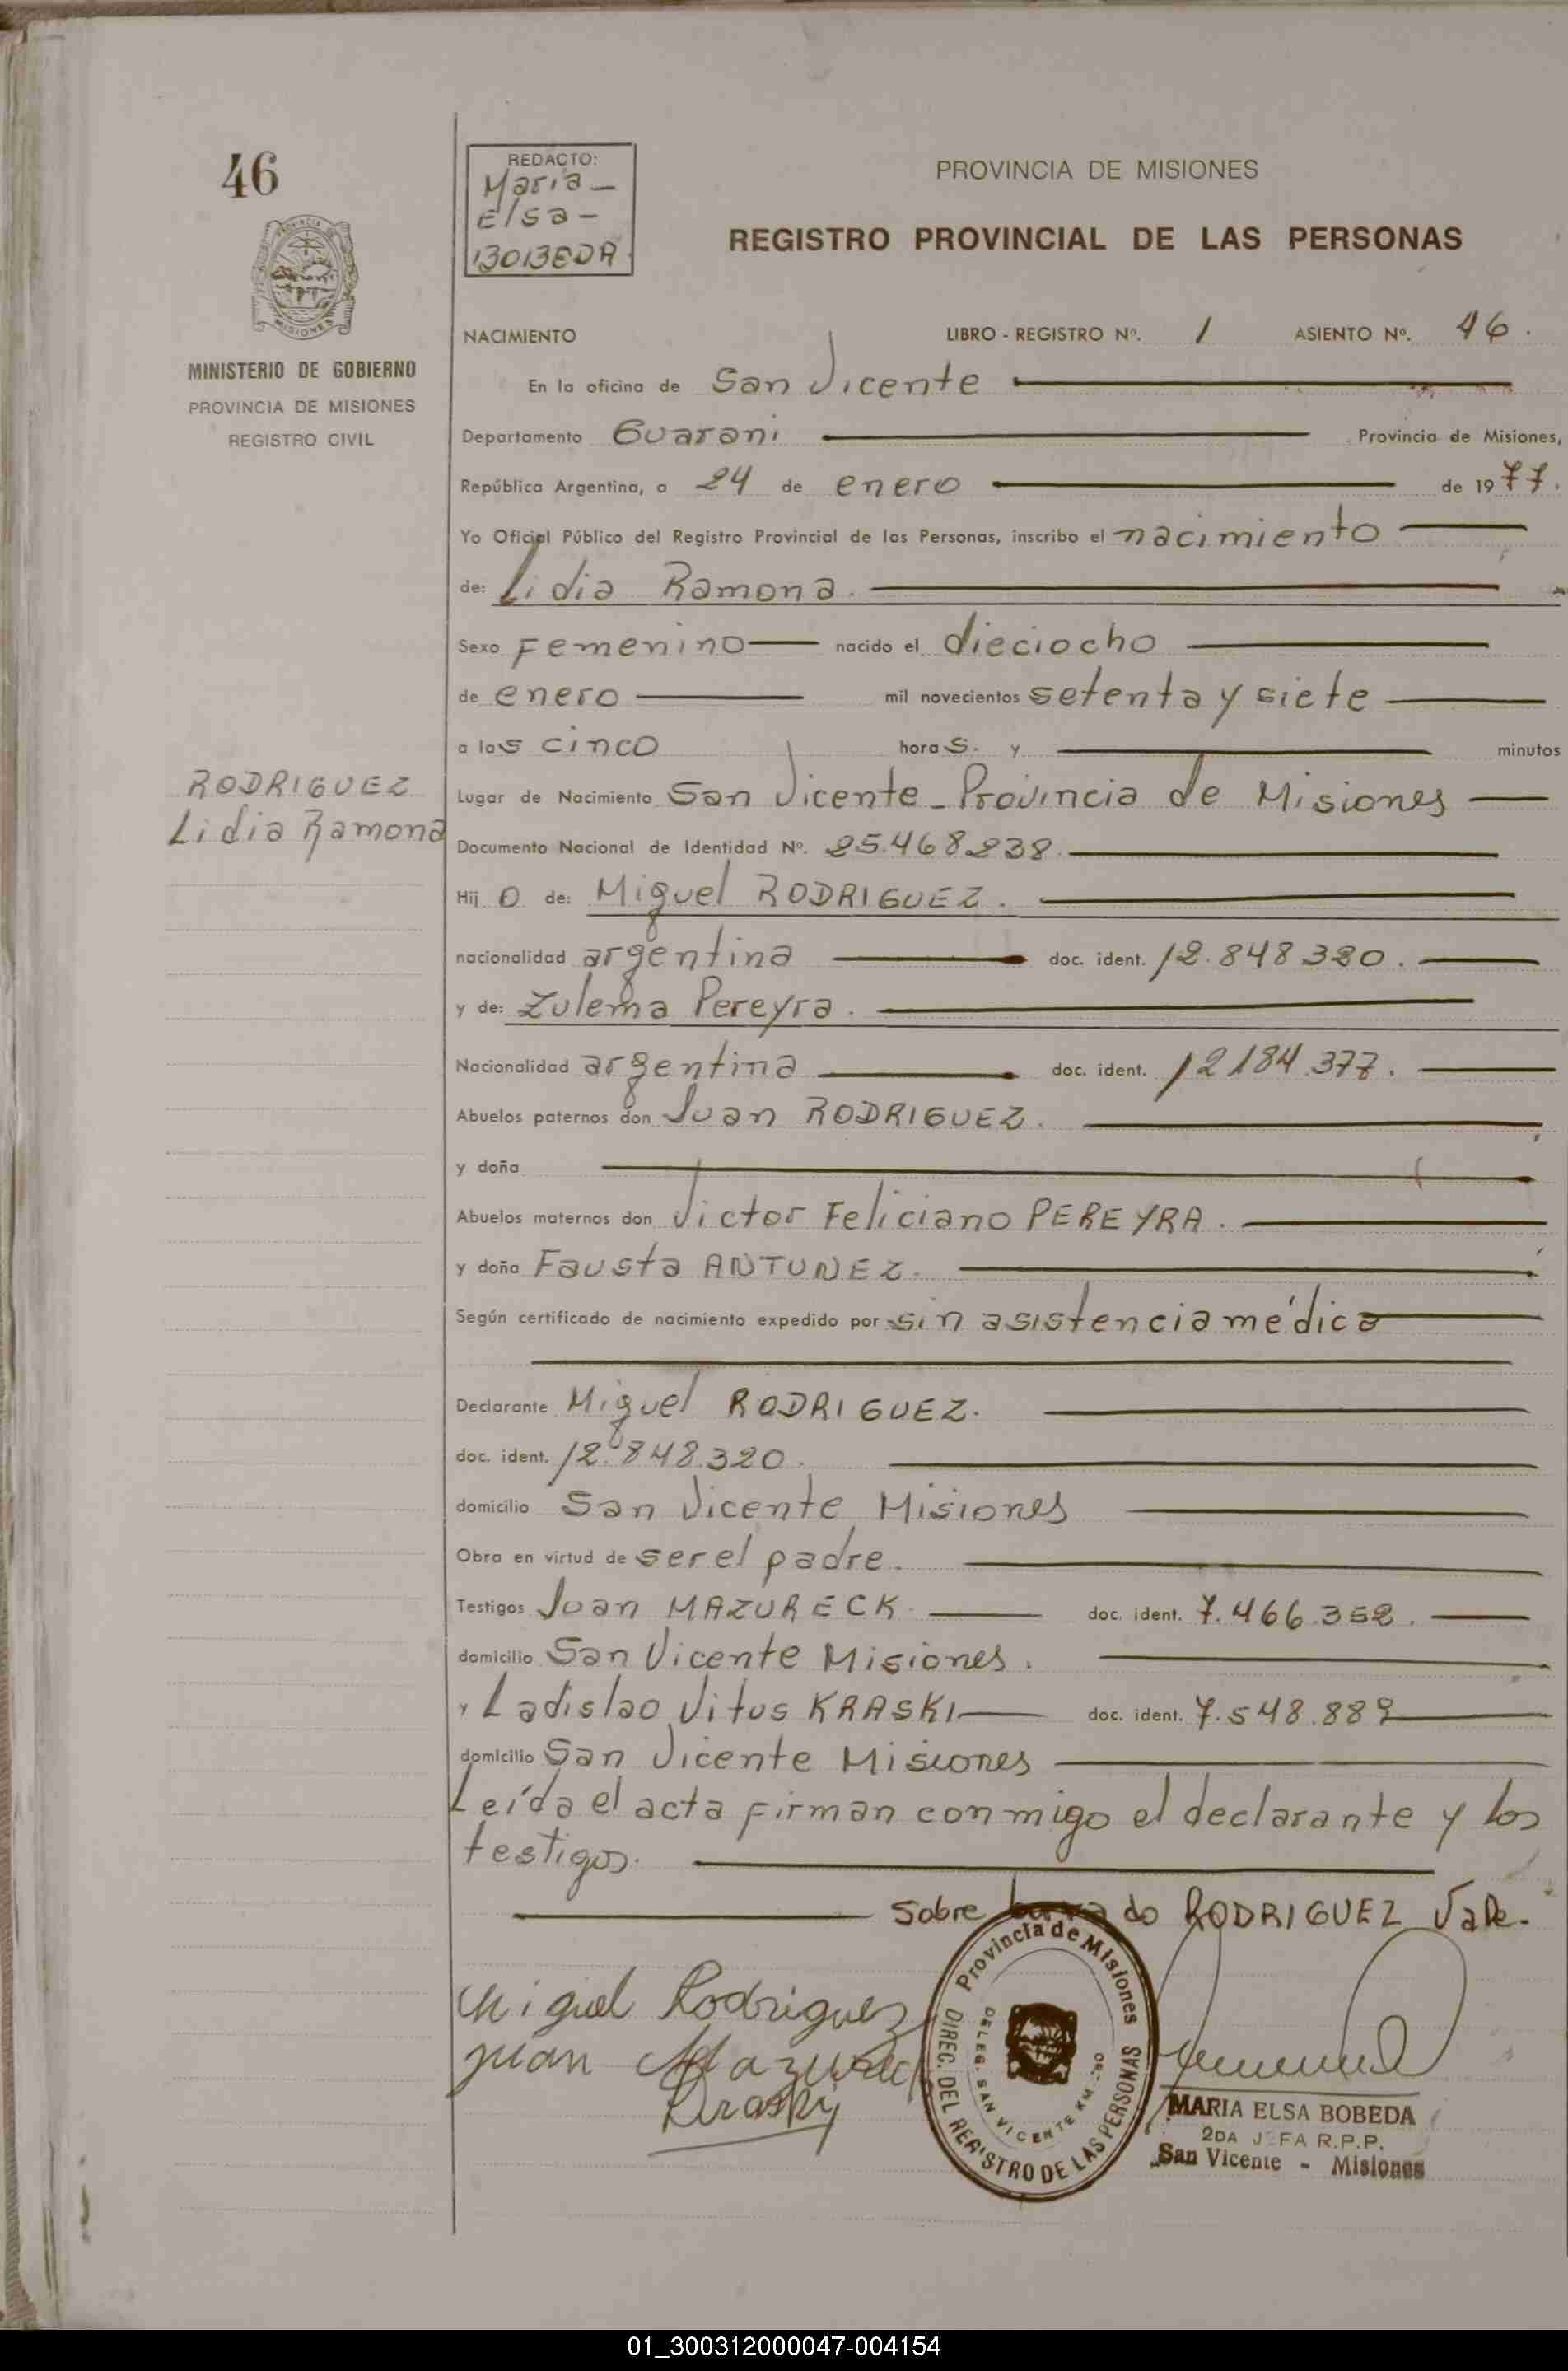 46
REDACTO:
Maria
Elsa
BOBEDA
PROVINCIA DE MISIONES
REGISTRO PROVINCIAL DE LAS PERSONAS
PROVINCIA DE
MISIONES
MINISTERIO DE GOBIERNO
PROVINCIA DE MISIONES
REGISTRO CIVIL
NACIMIENTO LIBRO - REGISTRO Nº. 1 ASIENTO Nº. 46.
En la oficina de San Vicente
Departamento Guarani Provincia de Misiones,
República Argentina, a 24 de enero de 1977.
Yo Oficial Público del Registro Provincial de las Personas, inscribo el nacimiento
de: Lidia Ramona.
Sexo Femenino nacido el dieciocho
de enero mil novecientos setenta y siete
a las cinco horas. y minutos
RODRIGUEZ
Lidia Ramona
Lugar de Nacimiento San Vicente - Provincia de Misiones
Documento Nacional de Identidad Nº. 25.468.238.
Hij a de: Miguel RODRIGUEZ.
nacionalidad argentina doc. ident. 12.848.320.
y de: Zulema Pereyra.
Nacionalidad argentina doc. ident. 12184.377.
Abuelos paternos don Juan RODRIGUEZ.
y doña
Abuelos maternos don Victor Feliciano PEREYRA.
y doña Fausta ANTUNEZ.
Según certificado de nacimiento expedido por sin asistencia médica
Declarante Miguel RODRIGUEZ.
doc. ident. 12.848.320.
domicilio San Vicente Misiones
Obra en virtud de ser el padre.
Testigos Juan MAZURECK. doc. ident. 7.466.352.
domicilio San Vicente Misiones.
y Ladislao Vitus KRASKI doc. ident. 7.548.889
domicilio San Vicente Misiones
Leída el acta firman conmigo el declarante y los
testigos.
Sobre borrado RODRIGUEZ Vale.
Miguel Rodriguez
Juan Mazureck
Kraski
Provincia de Misiones
DIREC. DEL REGISTRO DE LAS PERSONAS
DELEG. SAN VICENTE KM.
MARIA ELSA BOBEDA
2DA JEFA R.P.P.
San Vicente - Misiones
01_300312000047-004154